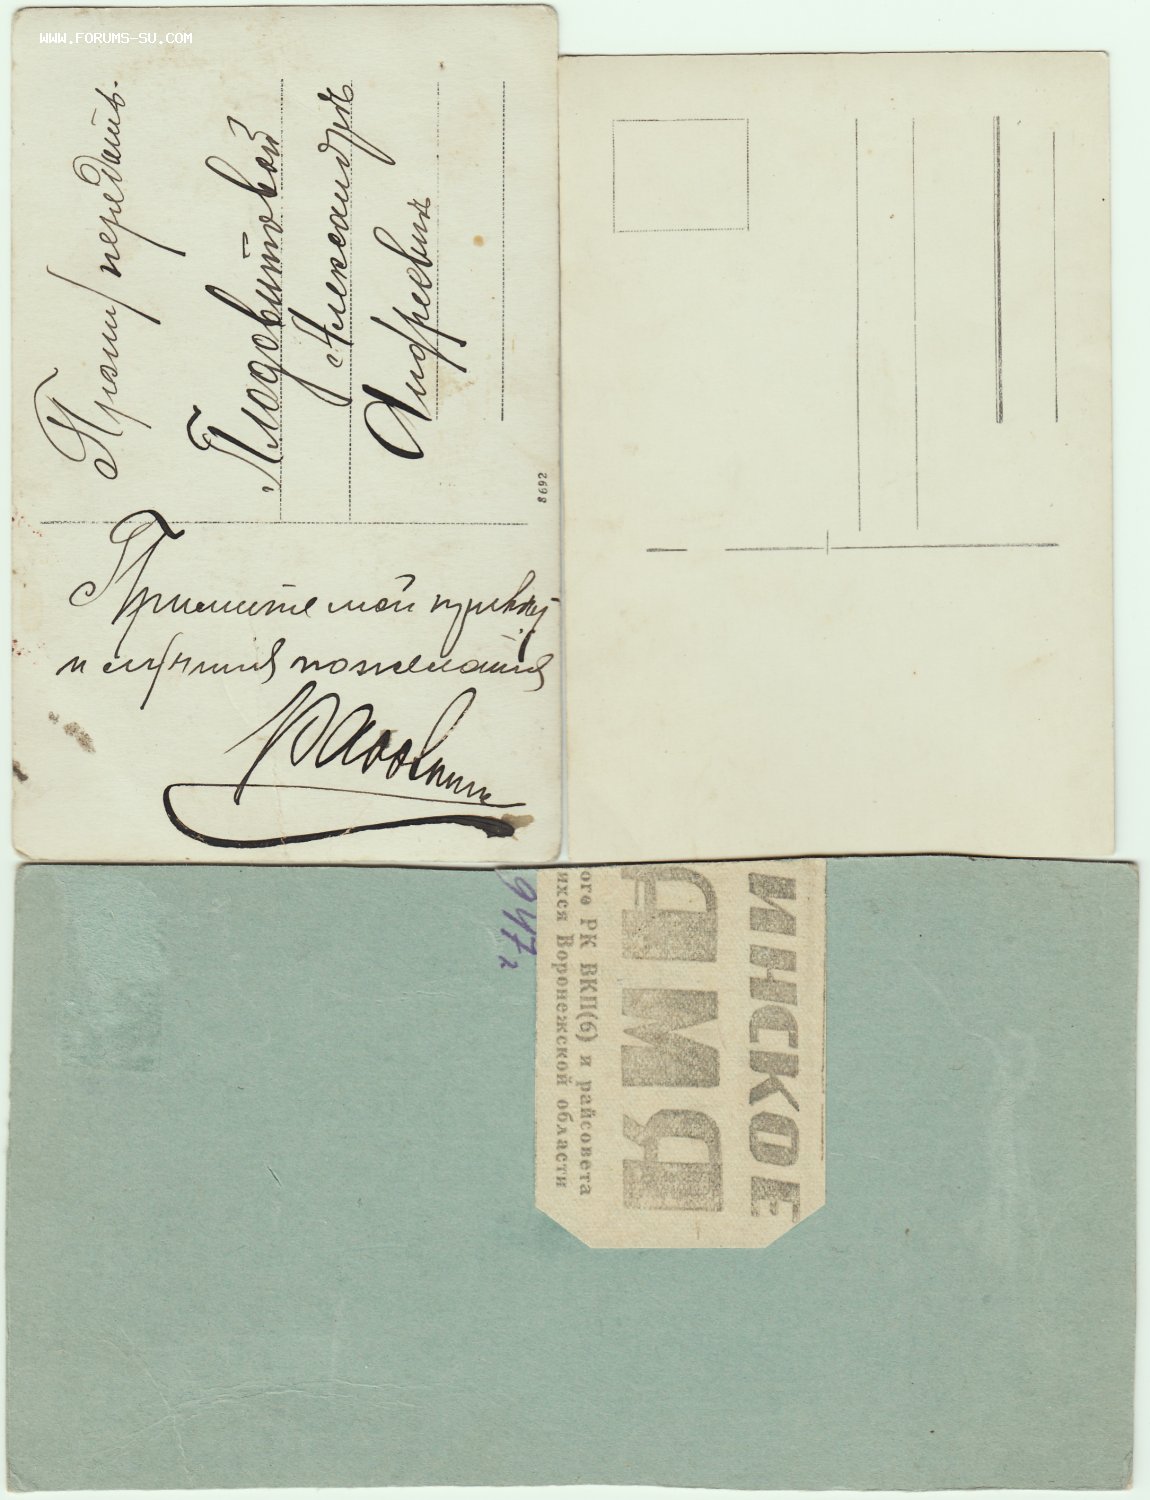 WWW.FORUMS-SU.COM
Прошу передать.
Плодовитовой
Александре
Андреевне
8692
Примите мой привет
и лучшия пожелания
947г
ИНСКОЕ
АМЯ
ого РК ВКП(б) и райсовета
ихся Воронежской области